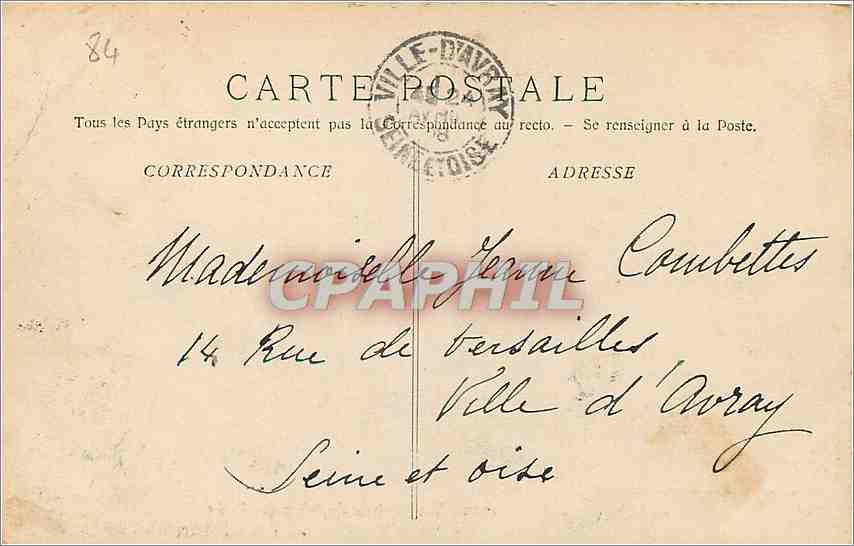 84
VILLE-D'AVRAY
SEINE ET OISE
CARTE POSTALE
Tous les Pays étrangers n'acceptent pas la Correspondance au recto. – Se renseigner à la Poste.
CORRESPONDANCE
ADRESSE
Mademoiselle Jeanne Combettes
CPAPHIL
14 Rue de Versailles
Ville d'Avray
Seine et Oise